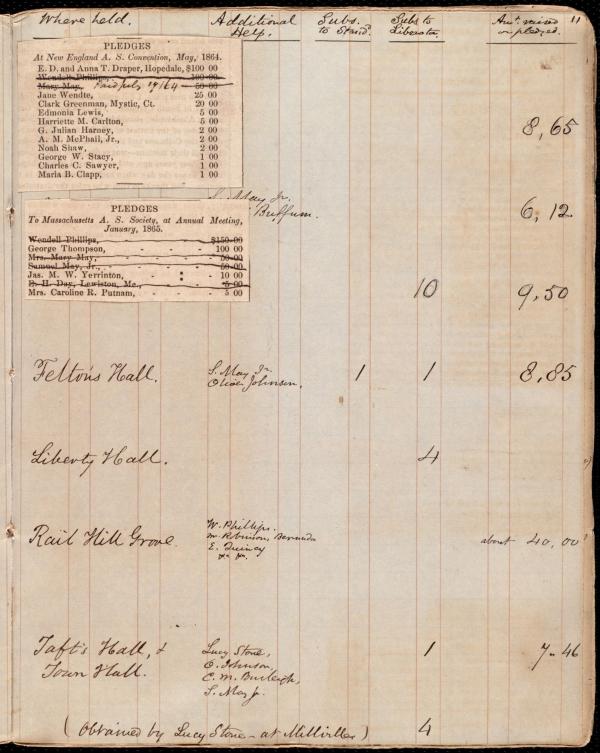 11
Where held. Additional Help. Subs. to Stand^d. Subs to Liberator. Am^t. raised or pledged.
PLEDGES
At New England A. S. Convention, May, 1864.
E. D. and Anna T. Draper, Hopedale, $100 00
Wendell Phillips, 100 00
Mary May, 50 00
Jane Wendte, 25 00
Clark Greenman, Mystic, Ct. 20 00
Edmonia Lewis, 5 00
Harriette M. Carlton, 5 00
G. Julian Harney, 2 00
A. M. McPhail, Jr., 2 00
Noah Shaw, 2 00
George W. Stacy, 1 00
Charles C. Sawyer, 1 00
Maria B. Clapp, 1 00
8,65
S. May Jr.
Buffum. 6,12
PLEDGES
To Massachusetts A. S. Society, at Annual Meeting,
January, 1865.
Wendell Phillips, $150 00
George Thompson, - - - 100 00
Mrs. Mary May, - - - 50 00
Samuel May, Jr., - - - 50 00
Jas. M. W. Yerrinton, - : - 10 00
E. H. Day, Lewiston, Me., - - 5 00
Mrs. Caroline R. Putnam, - - 5 00
10 9,50
Felton's Hall. S. May Jr. 1 1 8,85
Oliver Johnson.
Liberty Hall. 4
Rail Hill Grove. W. Phillips. about 40,00
M. Robinson,
E. Quincy
Taft's Hall, & Lucy Stone, 1 7-46
Town Hall. O. Johnson,
C. M. Burleigh,
S. May Jr.
(Obtained by Lucy Stone - at Millville) 4